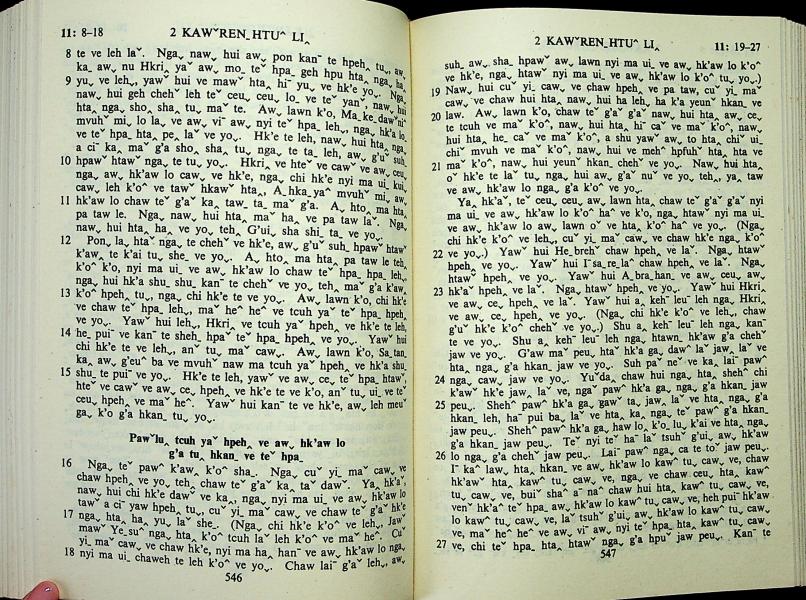 11: 8-18 2 KAWˇREN_HTUˆ LI˰
8 te ve leh laˇ. Nga˯ naw˯ hui aw˯ pon kanˉ te hpeh˰ tu˯, aw˯
ka˰ aw˯ nu Hkri˰ yaˇ aw˯ mo˰ teˇ hpa˰ geh hpu hta˰ nga˯ ha˰
9 yu˯ ve leh˰, yawˇ hui ve mawˇ hta˰ hiˇ yu˯ ve hk'e yo˯. Nga˯
naw˯ hui geh chehˇ leh teˇ ceu˯ ceu˯ lo˰ ve teˇ yanˇ, naw˯ hui
hta˰ nga˯ sho˰ sha˰ tu˰ maˇ te. Aw˯ lawn k'o˰ Ma_ke_dawˇniˇ
mvuhˇ mi˰ lo la˰ ve aw˯ viˉ aw˯ nyi teˇ hpa˰ leh˰, nga˯ hk'a lo
ve teˇ hpa˰ hta˰ pe˰ laˇ ve yo˯. Hk'e te leh˰ naw˯ hui hta˰ nga˯
a ciˆ ka˰ maˇ g'a sho˰ sha˰ tu˰ nga˯ te ta˰ leh˰ aw˯ g'uˇ suh˰
10 hpawˇ htawˇ nga˯ te tu˰ yo˯. Hkri˰ ve hteˇ ve cawˇ ve aw˯ ceu˯
nga˯ aw˯ hk'aw lo caw˰ ve hk'e, nga˯ chi hk'e nyi ma ui˰ kui˰
caw˰ leh k'oˆ ve tawˇ hkawˇ hta˰, A_hka_yaˆ mvuhˇ mi˰ aw˯
11 hk'aw lo chaw teˇ g'aˇ ka˰ taw˰ ta˰ maˇ g'a. A˰ hto˰ ma hta˰
pa taw le. Nga˯ naw˯ hui hta˰ maˇ ha˰ ve pa taw laˇ. Nga˯
naw˯ hui hta˰ ha˰ ve yo˯ teh˰ G'ui˰ sha shi˰ ta˰ ve yo˯.
12 Pon˰ la˰ htaˇ nga˯ te chehˇ ve hk'e, aw˯ g'uˇ suh˰ hpawˇ htawˇ
k'aw˰ te k'ai tu˰ she˰ ve yo˯. A˰ hto˰ ma hta˰ pa taw le teh˰
k'oˆ k'o˰ nyi ma ui˰ ve aw˯ hk'aw lo chaw teˇ hpa˰ hpa˰ leh˰
nga˯ hui hk'a shu˰ shu˰ kanˉ te chehˇ ve yo˯ teh˰ maˇ g'a k'aw˰
13 k'oˆ hpeh˰ tu˯, nga˯ chi hk'e te ve yo˯. Aw˯ lawn k'o˰ chi hk'e
ve chaw teˇ hpa˰ leh˰ maˇ heˆ heˆ ve tcuh yaˇ teˇ hpa˰ hpeh˰
ve yo˯. Yawˇ hui leh˰, Hkri˰ ve tcuh yaˇ hpeh˰ ve hk'e te leh˰
14 he˰ puiˉ ve kanˉ te sheh˰ hpaˇ teˇ hpa˰ hpeh˰ ve yo˯. Yawˇ hui
chi hk'e te ve leh˰, anˇ tu˰ maˇ caw˰. Aw˯ lawn k'o˰ Sa_tan_
ka˰ aw˯ g'euˆ ba ve mvuhˇ naw ma tcuh yaˇ hpeh˰ ve hk'a shu˰
15 shu˰ te puiˉ ve yo˯. Hk'e te leh, yawˇ ve aw˯ ce˰ teˇ hpa˰ htawˇ,
hteˇ ve cawˇ ve aw˯ ce˰ hpeh˰ ve hk'e te ve k'o˰ anˇ tu˰ ui˰ ve te
ceu˯ hpeh˰ ve maˇ heˆ. Yawˇ hui kanˉ te ve hk'e, aw˯ leh meuˇ
ga˰ k'o g'a hkan˰ tu˰ yo˯.
Pawˇlu˰ tcuh yaˇ hpeh˰ ve aw˯ hk'aw lo
g'a tu˰ hkan˰ ve teˇ hpa˰
16 Nga˯ teˇ pawˆ k'aw˰ k'oˆ sha˰. Nga˯ cuˇ yi˰ maˇ caw˰ ve
chaw hpeh˰ ve yo˯ teh˰ chaw teˇ g'aˇ ka˰ taˇ dawˇ. Ya˰ hk'aˇ,
naw˯ hui chi hk'e dawˇ ve ka˰, nga˯ nyi ma ui˰ ve aw˯ hk'aw lo
tawˇ a ciˇ yaw hpeh tu˯, cuˇ yi˰ maˇ caw˰ ve chaw teˇ g'aˇ hk'e
17 nga˯ hta˰ ha˰ yu˰ laˇ she˰. (Nga˯ chi hk'e k'oˆ ve leh˰, Jawˇ
mawˇ Ye_suˆ nga˯ hta˰ k'oˆ tcuh laˇ leh k'oˆ ve maˇ heˆ. Cuˇ
yi˰ maˇ caw˰ ve chaw hk'e, nyi ma ha˰ hanˉ ve aw˯ hk'aw lo nga˯
18 nyi ma ui˰ chaweh te leh k'oˆ ve yo˯. Chaw laiˉ g'aˇ leh˰, aw˯
546
2 KAWˇREN_HTUˆ LI˰ 11: 19-27
suh˰ aw˯ sha˰ hpawˇ aw˯ lawn nyi ma ui˰ ve aw˯ hk'aw lo k'oˆ
ve hk'e, nga˯ htawˇ nyi ma ui˰ ve aw˯ hk'aw lo k'oˆ tu˰ yo˯.)
19 Naw˯ hui cuˇ yi˰ caw˰ ve chaw hpeh˰ ve pa taw, cuˇ yi˰ maˇ
caw˰ ve chaw hui hta˰ naw˯ hui ha leh˰ ha k'a yeunˇ hkan˰ ve
20 law. Aw˯ lawn k'o˰ chaw teˇ g'aˇ g'aˇ naw˯ hui hta˰ aw˯ ce˰
te tcuh ve maˇ k'oˆ, naw˯ hui hta˰ hiˇ caˇ ve maˇ k'oˆ, naw˯
hui hta˰ he˰ caˇ ve maˇ k'oˆ, a shu yawˇ aw˯ to hta˰ chiˇ ui˰
chiˇ mvuh ve maˇ k'oˆ, naw˯ hui ve mehˆ hpfuhˇ hta˰ hta ve
21 maˇ k'oˆ, naw˯ hui yeunˇ hkan˰ chehˇ ve yo˯. Naw˯ hui hta˰
oˇ hk'e te laˇ tu˰ nga˯ hui aw˯ g'aˇ nuˇ ve yo˯ teh˰ ya˰ taw
ve aw˯ hk'aw lo nga˯ g'a k'oˆ ve yo˯.
Ya˰ hk'aˇ, teˇ ceu˯ ceu˯ aw˯ lawn hta˰ chaw teˇ g'aˇ g'aˇ nyi
ma ui˰ ve aw˯ hk'aw lo k'oˆ haˆ ve k'o˰ nga˯ htawˇ nyi ma ui˰
ve aw˯ hk'aw lo aw˯ lawn oˇ ve hta˰ k'oˆ haˆ ve yo˯. (Nga˯
chi hk'e k'oˆ ve leh˰, cuˇ yi˰ maˇ caw˰ ve chaw hk'e nga˯ k'oˆ
22 ve yo˯.) Yawˇ hui He_brehˇ chaw hpeh˰ ve laˇ. Nga˯ htawˇ
hpeh˰ ve yo˯. Yawˇ hui Iˉsa_re_laˆ chaw hpeh˰ ve laˇ. Nga˯
htawˇ hpeh˰ ve yo˯. Yawˇ hui A_bra_han_ ve aw˯ ceu˯ aw˯
23 hk'aˇ hpeh˰ ve laˇ. Nga˯ htawˇ hpeh˰ ve yo˯. Yawˇ hui Hkri˰
ve aw˯ ce˰ hpeh˰ ve yo˯. Yawˇ hui a˰ kehˉ leuˉ leh nga˯ Hkri˰
ve aw˯ ce˰ hpeh˰ ve yo˯. (Chi hk'e k'oˆ ve leh˰, chaw
g'uˇ hk'e k'oˆ chehˇ ve yo˯.) Shu a˰ kehˉ leuˉ leh nga˯ kanˉ
te ve yo˯. Shu a˰ kehˉ leuˉ leh nga˯ htawn˰ hk'aw g'a chehˇ
jaw ve yo˯. G'aw maˇ peu˰ htaˇ hk'a ga˰ dawˆ laˇ jaw˰ laˇ ve
hta˰ nga˯ g'a hkan jaw ve yo˯. Suh paˉ neˇ ve ka˰ laiˉ pawˆ
24 nga˯ caw˰ jaw ve yo˯. Yuˇda˰ chaw hui nga˯ hta˰ shehˆ chi
k'awˇ hk'e jaw˰ laˇ ve, nga˯ pawˆ hk'a ga˰ nga˯ g'a hkan jaw
25 peu˰. Shehˆ pawˆ hk'a ga˰ gawˇ ta˰ jaw˰ laˇ ve hta˰ nga˯ g'a
hkan leh˰ haˉ pui ba˰ laˇ ve hta˰ ka˰ nga˯ teˇ pawˆ g'a hkan˰
jaw peu˰. Shehˆ pawˆ hk'a ga˰ haw lo˰ k'o˰ lu˰ k'ai ve hta˰ nga˯
g'a hkan˰ jaw peu˰. Teˇ nyi teˇ haˉ laˇ tsuhˇ g'ui˰ aw˯ hk'aw
26 lo nga˯ g'a chehˇ jaw peu˰. Laiˉ pawˆ nga˯ ca te toˇ jaw peu˰.
Iˉ kaˆ law˰ hta˰ hkan˰ ve aw˯ hk'aw lo kawˆ tu˰ caw˰ ve, chaw
hk'awˇ hta˰ kawˆ tu˰ caw˰ ve, nga˯ ve chaw ceu˯ hta˰ kawˆ
tu˰ caw˰ ve, buiˇ shaˇ aˉ naˆ chaw hui hta˰ kawˆ tu˰ caw˰ ve,
venˇ hk'aˆ teˇ hpa˰ aw˯ hk'aw lo kawˆ tu˰ caw˰ ve, heh puiˉ hk'aw
lo kawˆ tu˰ caw˰ ve, laˇ tsuhˇ g'ui˰ aw˯ hk'aw lo kawˆ tu˰ caw˰
ve, maˇ heˆ heˆ ve aw˯ viˉ aw˯ nyi teˇ hpa˰ hta˰ kawˆ tu˰ caw˰
27 ve, chi teˇ hpa˰ hta˰ htawˇ nga˯ g'a hpuˇ jaw peu˰. Kanˉ te
547